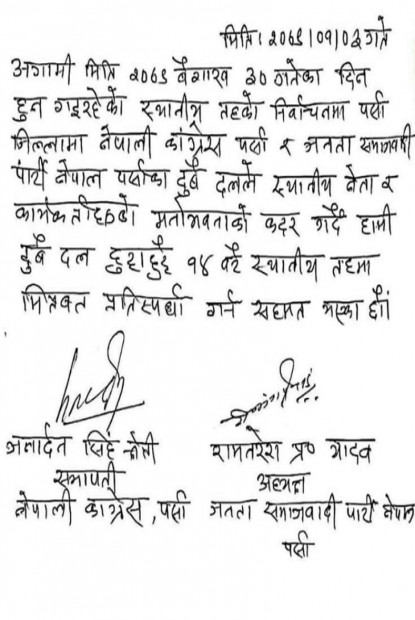 मिति: २०७९/०१/०३ गते
अगामी मिति २०७९ बैशाख ३० गतेका दिन
हुन गइरहेको स्थानीय तहको निर्वाचनमा पर्सा
जिल्लामा नेपाली कांग्रेस पर्सा र जनता समाजवादी
पार्टी नेपाल पर्साका दुबै दलले स्थानीय नेता र
कार्यकर्ताहरुको मनोभावनाको कदर गर्दै हामी
दुबै दल छुट्टाछुट्टै १४ वटै स्थानीय तहमा
मित्रवत प्रतिस्पर्धा गर्न सहमत भएका छौं।
जनार्दन सिंह क्षेत्री
सभापती
नेपाली कांग्रेस, पर्सा
रामनरेश प्र॰ यादव
अध्यक्ष
जनता समाजवादी पार्टी नेपाल
पर्सा